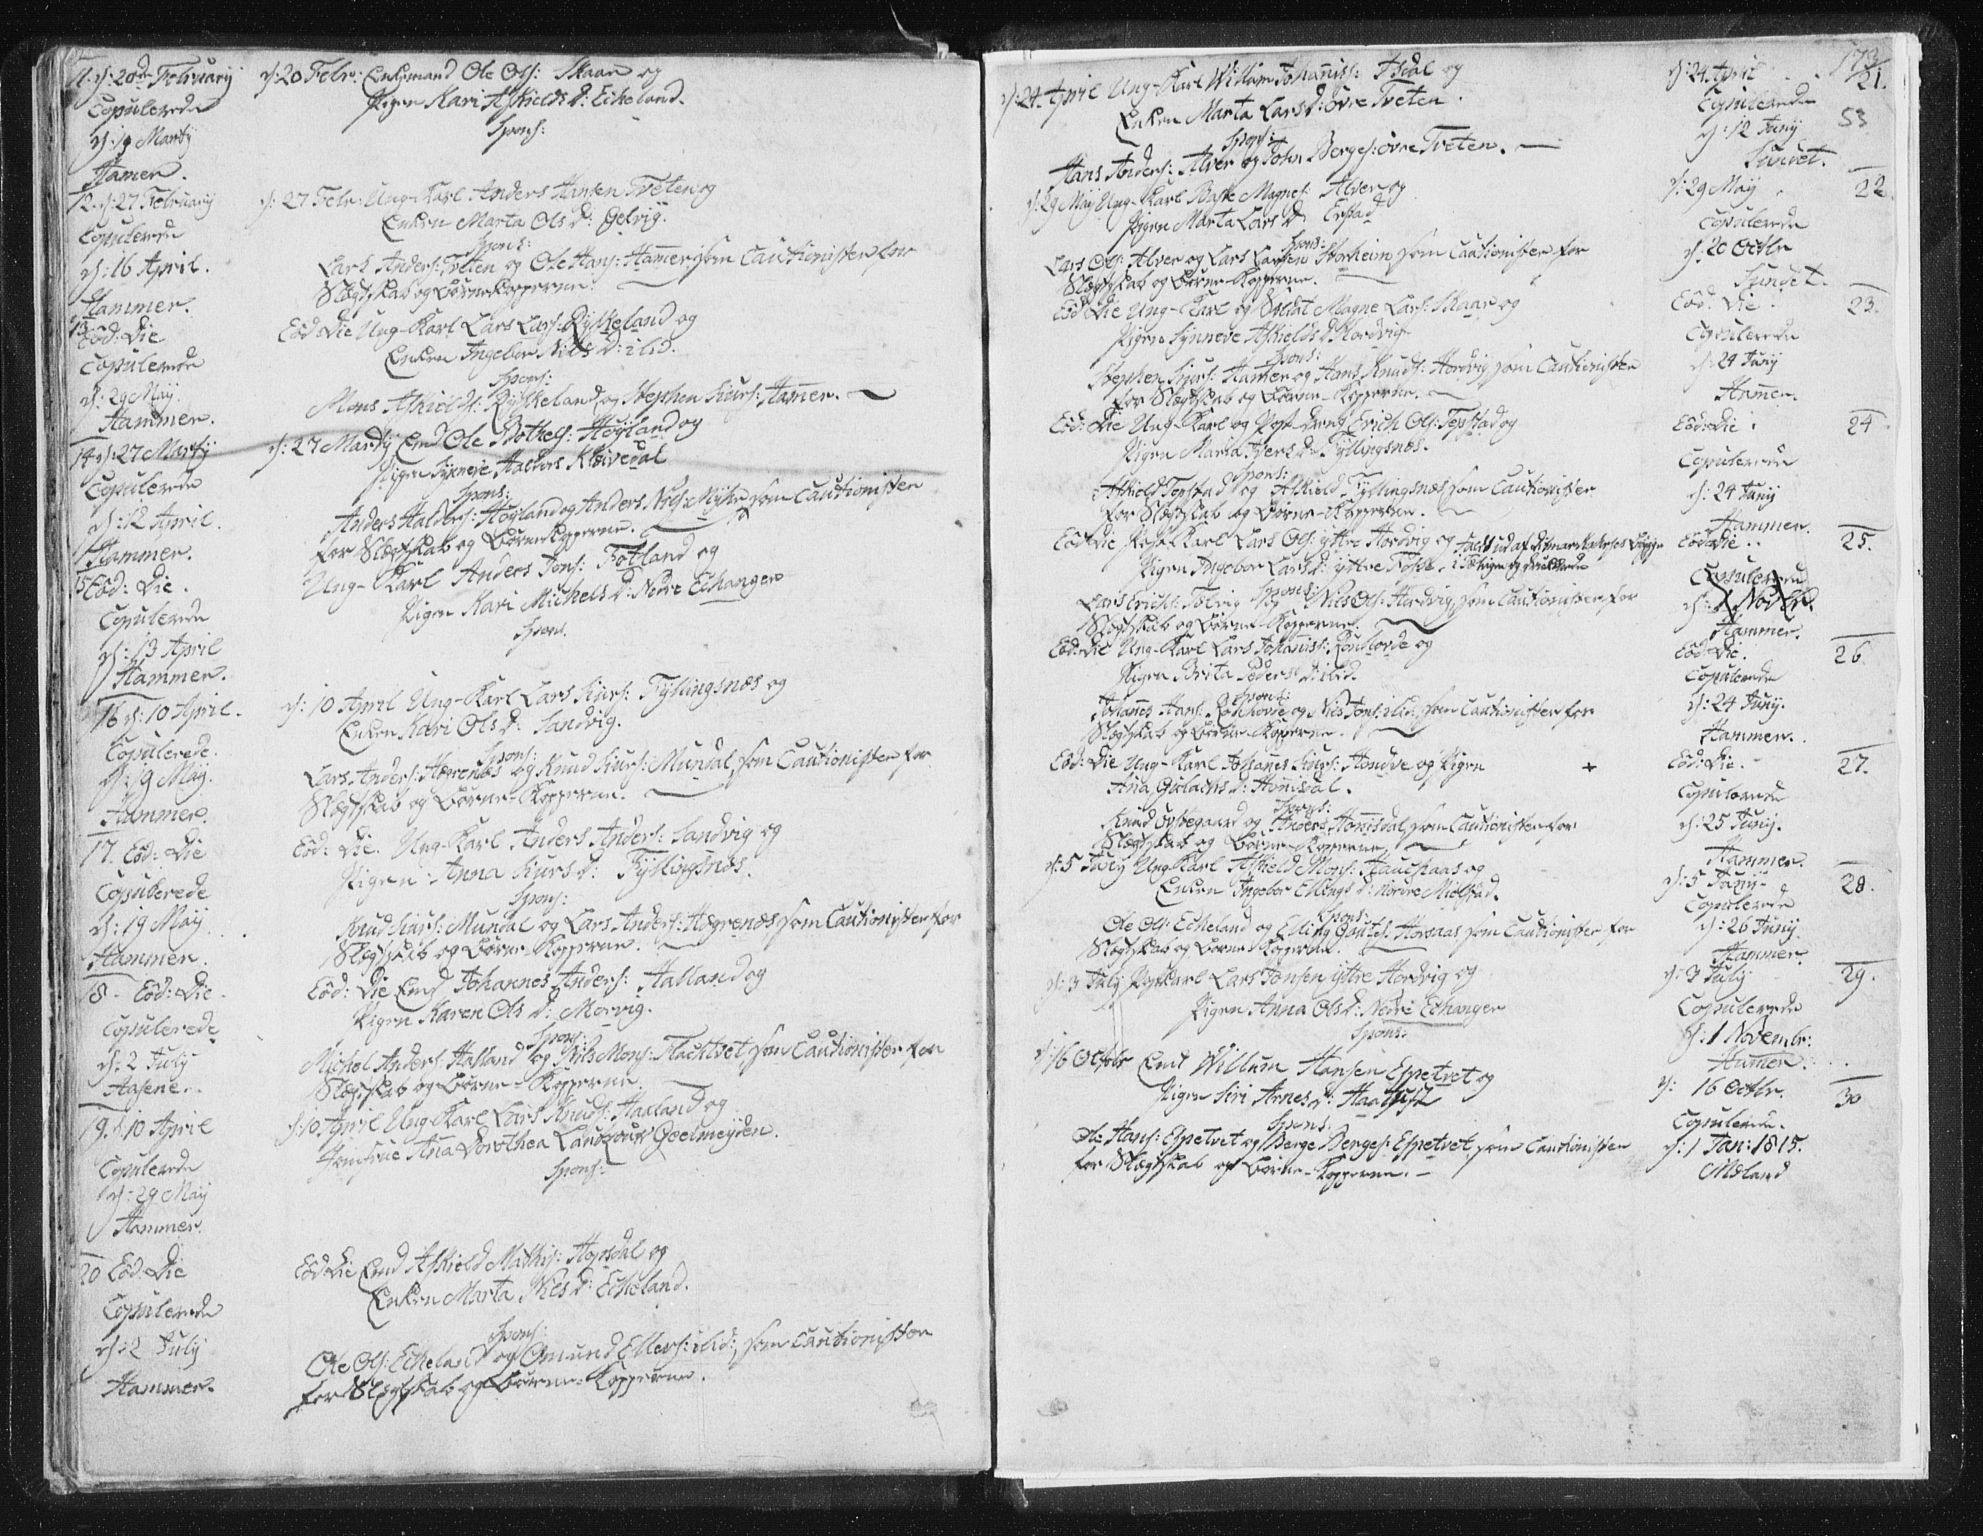 11. d: 20de February
Copulerede
d: 19 Marty
Hamer.
d: 20 Febr: Enkemand Ole Ols: Skaar og
Pigen Kari Askields D: Eikeland.
Spons:
12. d: 27 February
Copulerede
d: 16 April.
Hammer.
d: 27 Febr: Ung-Karl Anders Hansen Tveten og
Enken Marta Ols D: Gelvig.
Spons:
Lars Anders: Tveten og Ole Hans: Hamer, som Cautionister for
Slægtskab og Børne-Kopperne.
13 Eod: Die
Copulerede
d: 29 May.
Hammer.
Eod: Die Ung-Karl Lars Lars: Rylkeland og
Enken Ingebor Nils D: ibid.
Spons:
Mons Askields: Rylkeland og Stephen Siurs: Hamer.
14 d: 27 Marty
Copulerede
d: 12 April.
Hammer.
d: 27 Marty Emd Ole Bothels: Høyland og
Pigen Synneve Haldors Kleivedal
Spons:
Anders Haldors: Høyland og Anders Nils: Myhre som Cautionister
for Slægtskab og Børne-Kopperne.
15 Eod: Die.
Copulerede
d: 13 April
Hammer.
Ung-Karl Anders Jons: Fotland og
Pigen Kari Michels D: Nedre Echanger
Spons.
16 d: 10 April.
Copulerede.
d: 19 May.
Hammer.
d: 10 April Ung-Karl Lars Siurs: Fyllingsnæs og
Enken Kari Ols D: Sandvig.
Spons:
Lars Anders: Hægrenæs og Knud Siurs: Mundal, som Cautionister for
Slægtskab og Børne-Kopperne.
17. Eod: Die
Copulerede
d: 19 May.
Hammer.
Eod: Die. Ung-Karl Anders Anders: Sandvig og
Pigen Anna Siurs D: Fyllingsnæs.
Spons:
Knud Siurs: Mundal og Lars Anders: Hægrenæs som Cautionister for
Slægtskab og Børne-Kopperne.
18 - Eod: Die.
Copulerede
d: 2 July
Aasene.
Eod: Die Emd Johannes Anders: Hatland og
Pigen Karen Ols D: Mervig.
Spons:
Michel Anders: Hatland og Nils Mons: Flacktvet, som Cautionister for
Slægtskab og Børne-Kopperne.
19. d: 10 April
Copulerede
d: 29 May
Hammer.
d: 10 April Ung-Karl Lars Knuds: Hatland og
Jomfrue Ana Dorothea Geelmeyden.
Spons:
20 Eod: Die
Copulerede
d: 2 July
Hammer.
Eod: Die Emd Askield Mathis: Hopsdal og
Enken Marta Nils D: Eckeland.
Spons:
Ole Ols: Eckeland og Omund Ellers: ibid:, som Cautionister
for Slegtskab og Børne-Kopperne.
173
53
d: 24. April Ung-Karl Willum Johannis: Isdal og
Enken Marta Lars D: øvre Tveten.
Spons:
Hans Anders: Alver og John Berges: øvre Tveten.
d: 24 April
Copulerede
d: 12 Juny
Sundet.
21.
d: 29 May Ung-Karl Baste Magnes: Alver og
Pigen Marta Lars D: Erstad
Spons:
Lars Ols: Alver og Lars Larsen Storheim som Cautionister for
Slægtskab og Børne-Kopperne.
d: 29 May
Copulerede
d: 20 Octbr
Sundet.
22
Eod: Die Ung-Karl og Soldat Magne Lars: Skaar og
Pigen Synneve Askields D: Hordvig
Spons:
Stephen Siurs: Hamer og Hans Knuds: Hordvig som Cautionister
for Slægtskab og Børne-Kopperne.
Eod: Die.
Copulerede
d: 24 Juny
Hamer.
23.
Eod: Die Ung-Karl og Erich Ols: Tepstad og
Pigen Maria Ivers D: Fyllingsnæs.
Spons:
Askield Tepstad og Askield Fyllingsnæs som Cautionister
for Slægtskab og Børne-Kopperne.
Eod: Die
Copulerede
d: 24 Juny
Hammer.
24
Eod: Die Lars Ols: yttre Hordvig og
Pigen Ingebor Lars D: yttre
Spons:
Lars Erichs: Tolvig og Nils Ols: Hordvig, som Cautionister for
Slægtskab og Børne-Kopperne.
Eod: Die.
Copulerede
d: 1 Novbr.
Hammer.
25.
Eod: Die Ung-Karl Lars Johannis: Rønhovde og
Pigen Brita Peders D: ibid.
Spons:
Johannes Hans: Rønhovde og Nils Jons: ibid, som Cautionister for
Slægtskab og Børne-Kopperne.
Eod: Die.
Copulerede
d: 24 Juny.
Hammer.
26.
Eod: Die Ung-Karl Johannes Siurs: Hundve og Pigen
Ana Gulachs D: Honisdal.
Spons:
Knud Opdegaard og Anders Honisdal, som Cautionister for
Slægtskab og Børne-Kopperne.
Eod: Die.
Copulerede
d: 25 Juny.
Hammer.
27.
d: 5 Juny Ung-Karl Askield Mons: Hauchaas og
Enken Ingebor Ellings D: nordre Mielstad.
Spons:
Ole Ols: Eckeland og Elling Houchaas som Cautionister for
Slægtskab og Børne-Kopperne.
d: 5 Juny
Copulerede
d: 26 Juny.
Hammer.
28.
d: 3 July Ung-Karl Lars Jonsen yttre Hordvig og
Pigen Anna Ols D: Nedre Echanger
Spons:
d: 3 July
Copulerede
d: 1 Novembr:
Hamer.
29.
d: 16 Octobr Emd Willum Hansen Espetvet og
Pigen Siri Arnes D: Haatuft
Spons:
Ole Hans: Espetvet og Berge Berges: Espetvet som Cautionister
for Slægtskab og Børne-Kopperne.
d: 16 Octbr.
Copulerede.
d: 1 Jan: 1815.
Mæland
30